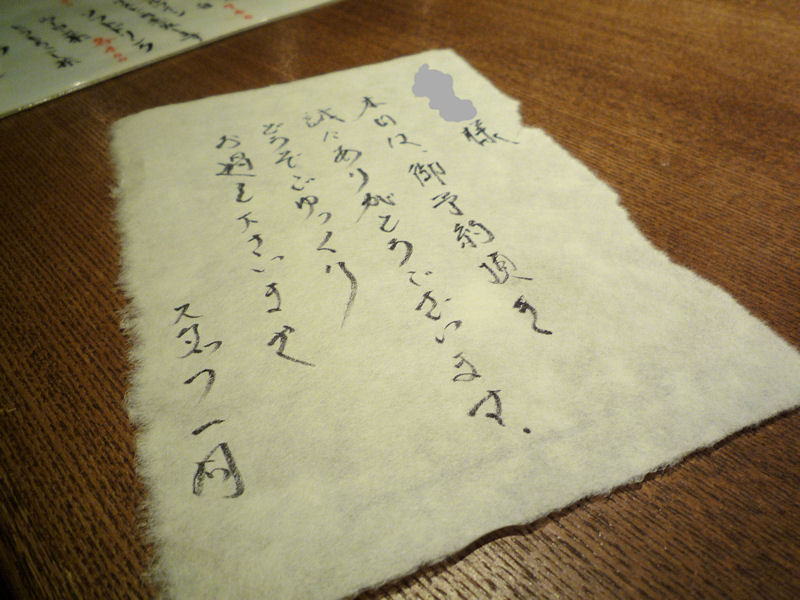 様
本日は、御予約頂き
誠にありがとうございます.
どうぞごゆっくり
お過し下さいませ
スタッフ一同